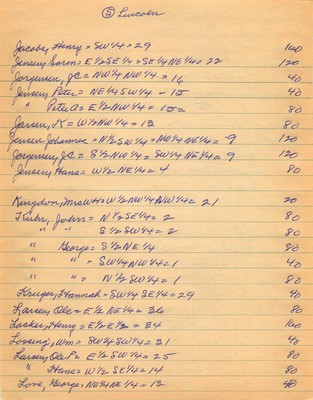 ⑤ Lincoln
Jacoby, Henry = SW1/4 = 29 160
Jensen, Soren = E1/2 SE1/4 = SE1/4 NE1/4 = 22 120
Jorgensen, JC = NW1/4 NW1/4 = 16 40
Jensen, Peter = NE1/4 SW1/4 - 15 40
" Peter A = E1/2 NW1/4 = 15 = 80
Jansen, K = W1/2 NW1/4 = 13 80
Jensen Johannes = N1/2 SW1/4 = NW1/4 NE1/4 = 9 120
Jorgensen, JC = S1/2 NW1/4 = SW1/4 NE1/4 = 9 120
Jensen, Hans = W1/2 NE1/4 = 4 80
Kingdon, Mrs WH = W1/2 NW1/4 NW1/4 = 21 20
Kuhr, John = N1/2 SE1/4 = 2 80
" " S1/2 SW1/4 = 2 80
" George = S1/2 NE1/4 80
" " = SW1/4 NW1/4 = 1 40
" " = N1/2 SW1/4 = 1 80
Kruger, Hannah = SW1/4 SE1/4 = 29 40
Larsen, Ole = E1/2 NE1/4 = 36 80
Lacker, Henry = E1/2 E1/2 = 34 160
Lossing, Wm = SW1/4 SW1/4 = 31 40
Larsen, Ole P = E1/2 SW1/4 = 25 80
" Hans = W1/2 SE1/4 = 14 80
Love, George, NE1/4 NE1/4 = 13 40